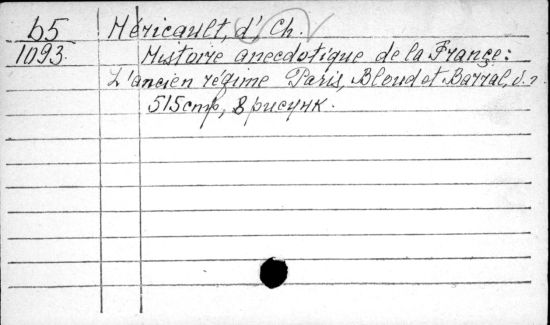 b5 Héricault, d' Ch.
1093. Histoire anecdotique de la France:
L'ancien régime Paris, Bloud et Barral, s.
515 стр, 8 рисунк.